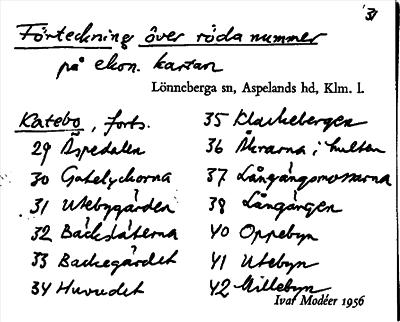 31
Förteckning över röda nummer
på ekon. kartan
Lönneberga sn, Aspelands hd, Klm. l.
Katebo, forts.
29 Äspedalen
30 Gatelyckorna
31 Utebygärden
32 Backslåtterna
33 Backegärdet
34 Huvudet
35 Klackebergen
36 Åkrarna i hulten
37 Långängsmossarna
38 Långängen
40 Oppebyn
41 Utebyn
42 Millebyn
Ivar Modéer 1956